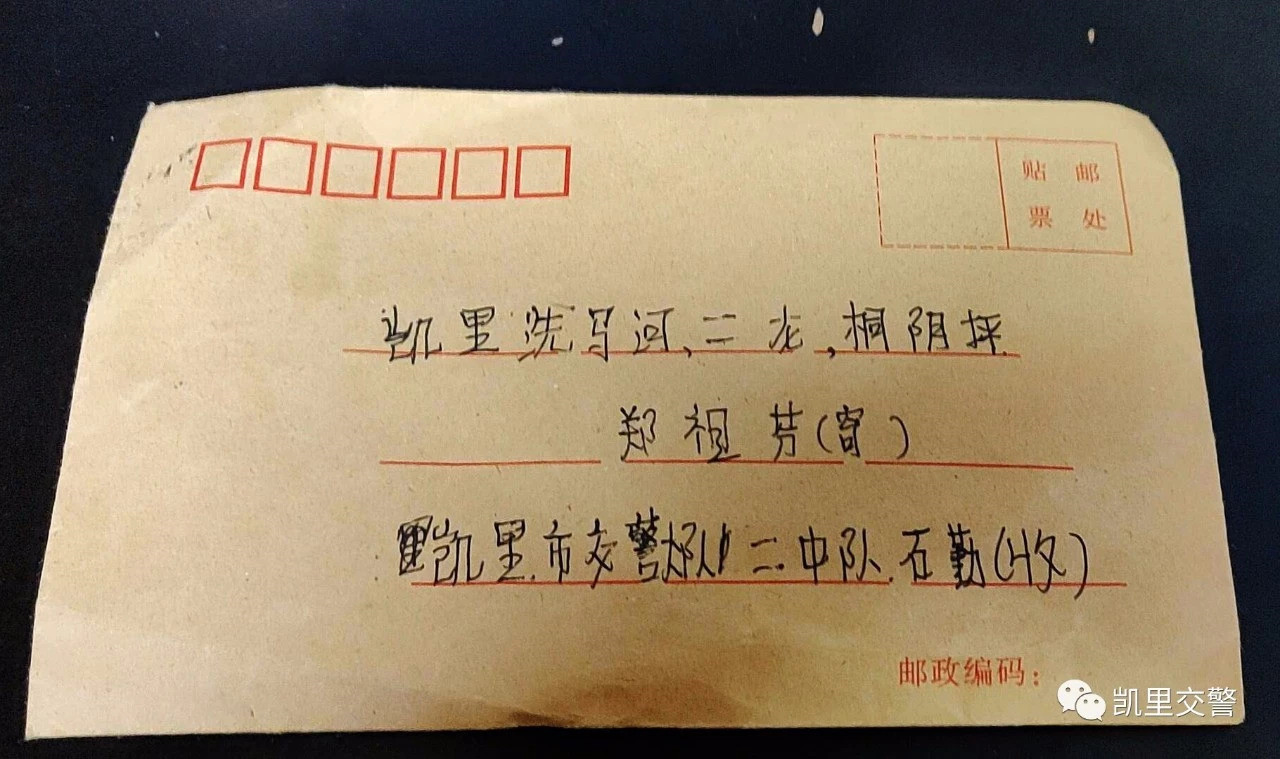 贴 邮
票 处
凯里洗马河、二龙,桐阴坪
郑祖芬(寄)
凯里市交警大队二中队石勤(收)
邮政编码:
凯里交警